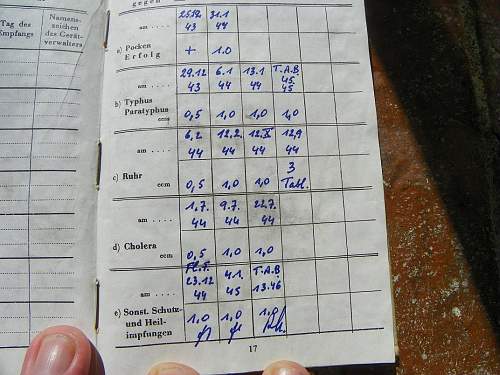 Tag des
Empfangs
Namens-
zeichen
des Gerät-
verwalters
gegen
am .... 31.1
43 44
a) Pocken
Erfolg + 1.0
am .... 29.12 6.1 13.1 T.A.B.
43 44 44 45
b) Typhus
Paratyphus
ccm 0,5 1,0 1,0 1,0
am .... 6.2. 12.2. 12.9
44 44 44 44
c) Ruhr
ccm 0,5 1,0 1,0 3 Tabl.
am .... 1.7. 9.7. 22.7.
44 44 44
d) Cholera
ccm 0,5 1,0 1,0
am .... 23.12 4.1. T.A.B.
44 45 13.46
e) Sonst. Schutz-
und Heil-
impfungen 1,0 1,0 1,0
17